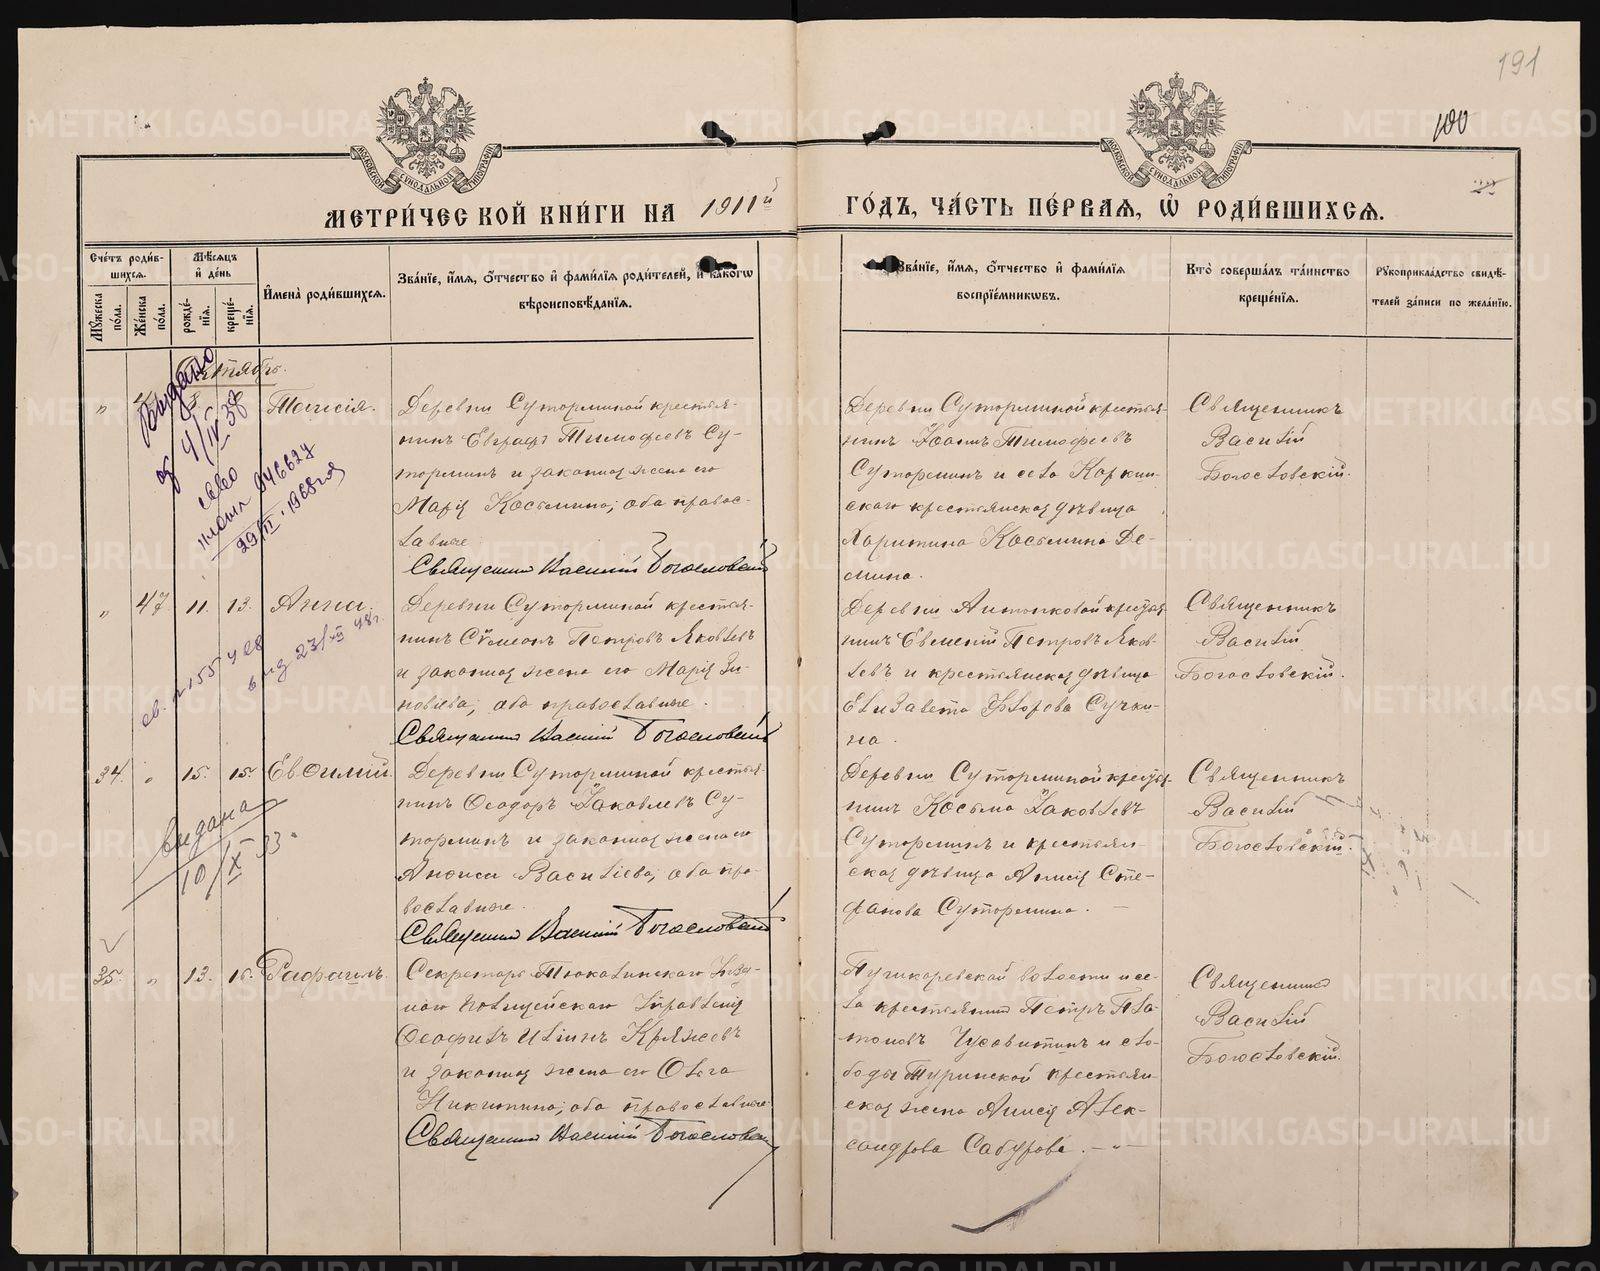 191
100
МЕТРИ́ЧЕСКОЙ КНИ́ГИ НА 1911й ГО́ДЪ, ЧА́СТЬ ПЕ́РВАЯ, Ѡ҆ РОДИ́ВШИХСЯ.
МОСКОВСКОЙ СѴНОДАЛЬНОЙ ТИПОГРАФІИ
МОСКОВСКОЙ СѴНОДАЛЬНОЙ ТИПОГРАФІИ
Сче́тъ роди́в-
шихся.
Мѣ́сяцъ
и҆ де́нь
Мꙋ́жеска
по́ла.
Же́нска
по́ла.
рожде́-
нїя.
креще́-
нїя.
И҆мена̀ роди́вшихся.
Зва́нїе, и҆́мя, ѻ҆́тчество и҆ фами́лїя роди́телей, и҆ како́гѡ
вѣроисповѣ́данїя.
Зва́нїе, и҆́мя, ѻ҆́тчество и҆ фами́лїя
воспрїе́мникѡвъ.
Кто̀ соверша́лъ та́инство
креще́нїя.
Рꙋкоприкла́дство свидѣ́-
телей за́писи по жела́нїю.
Таисія.
Деревни Суторминой крестья-
нинъ Евграфъ Тимофеевъ Су-
торминъ и законная жена его
Марія Косьмина; оба правос-
лавные
Священникъ Василій Богословскій
Деревни Суторминой крестья-
нинъ Іоаннъ Тимофеевъ
Суторминъ и села Каркин-
скаго крестьянская дѣвица
Харитина Косьмина Де-
мина.
Священникъ
Василій
Богословскій.
выдано
4/IV 38
29/XI. 1968 г.
" 47. 11. 13. Анна.
Деревни Суторминой крестья-
нинъ Симеонъ Петровъ Яковлевъ
и законная жена его Марія Зи-
новьева; оба православные.
Священникъ Василій Богословскій
Деревни Антонковой крестья-
нинъ Евменій Петровъ Яков-
левъ и крестьянская дѣвица
Елизавета Флорова Сучки-
на.
Священникъ
Василій
Богословскій.
34. " 15. 15. Евѳимій.
Деревни Суторминой крестья-
нинъ Ѳеодоръ Іаковлевъ Су-
торминъ и законная жена его
Анѳиса Васильева; оба пра-
вославные.
Священникъ Василій Богословскій
Деревни Суторминой крестья-
нинъ Косьма Іаковлевъ
Суторминъ и крестьян-
ская дѣвица Анисія Сте-
фанова Сутормина. —
Священникъ
Василій
Богословскій.
выдана
10/IX 33
35. " 13. 15. Рафаилъ.
Секретарь Тюкалинскаго Уѣзд-
наго Полицейскаго Управленія
Ѳеофилъ Ильинъ Кряжевъ
и законная жена его Ольга
Никитина; оба православные
Священникъ Василій Богословскій
Пушкаревской волости и се-
ла крестьянинъ Петръ Пла-
тоновъ Чусовитинъ и сло-
боды Туринской крестьян-
ская жена Анисія Алек-
сандрова Сабурова. —"—
Священникъ
Василій
Богословскій.
METRIKI.GASO-URAL.RU